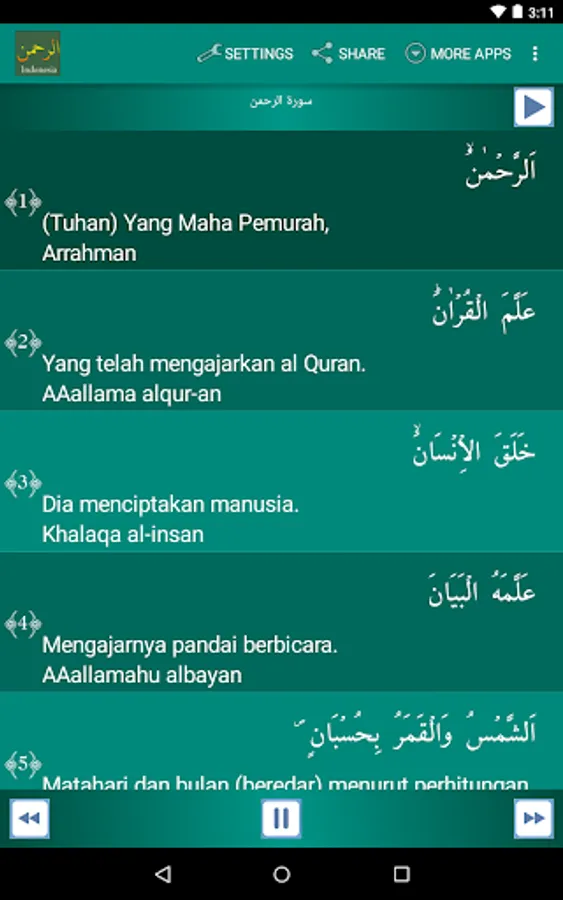 3:11
الرحمن
Indonesia
SETTINGS
SHARE
MORE APPS
سورة الرحمن
اَلرَّحْمٰنُۙ
﴾1﴿
(Tuhan) Yang Maha Pemurah,
Arrahman
عَلَّمَ الْقُرْاٰنَؕ
﴾2﴿
Yang telah mengajarkan al Quran.
AAallama alqur-an
خَلَقَ الْاِنْسَانَۙ
﴾3﴿
Dia menciptakan manusia.
Khalaqa al-insan
عَلَّمَهُ الْبَيَانَ
﴾4﴿
Mengajarnya pandai berbicara.
AAallamahu albayan
اَلشَّمْسُ وَالْقَمَرُ بِحُسْبَانٍ ۪
﴾5﴿
Matahari dan bulan (beredar) menurut perhitungan